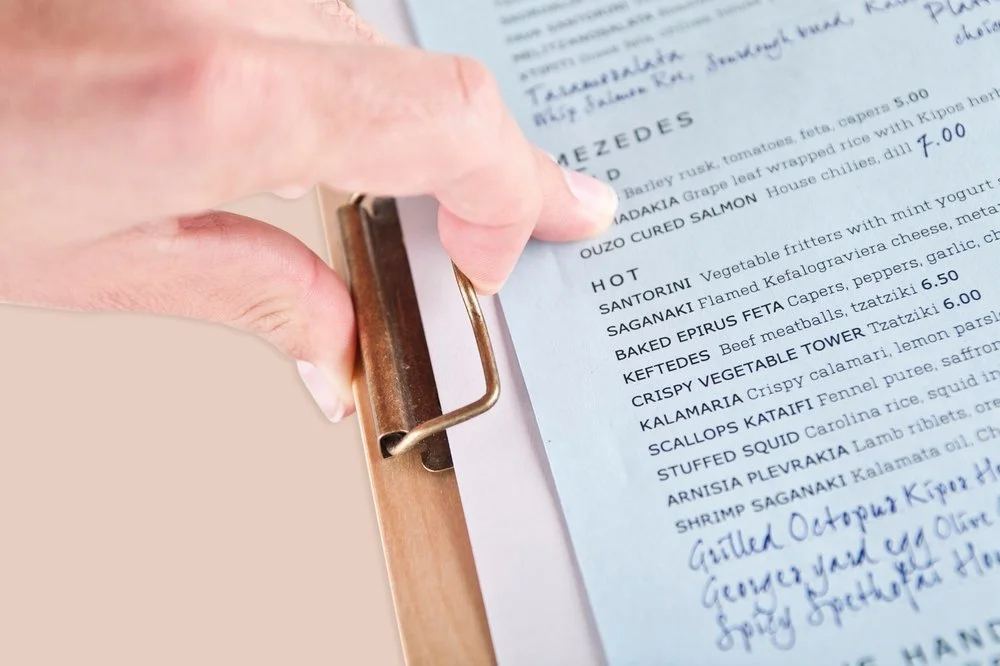 Taramosalata
Whip Salmon Roe, Sourdough bread,
choice
MEZEDES
D
Barley rusk, tomatoes, feta, capers 5.00
ADAKIA Grape leaf wrapped rice with Kipos herb
OUZO CURED SALMON House chilies, dill 7.00
HOT
SANTORINI Vegetable fritters with mint yogurt
SAGANAKI Flamed Kefalograviera cheese, meta
BAKED EPIRUS FETA Capers, peppers, garlic, ch
KEFTEDES Beef meatballs, tzatziki 6.50
CRISPY VEGETABLE TOWER Tzatziki 6.00
KALAMARIA Crispy calamari, lemon parsl
SCALLOPS KATAIFI Fennel puree, saffron
STUFFED SQUID Carolina rice, squid in
ARNISIA PLEVRAKIA Lamb riblets, ore
SHRIMP SAGANAKI Kalamata oil, Ch
Grilled Octopus Kipos Ho
Georges yard egg Olive
Spicy Spethofai Hou
HAND